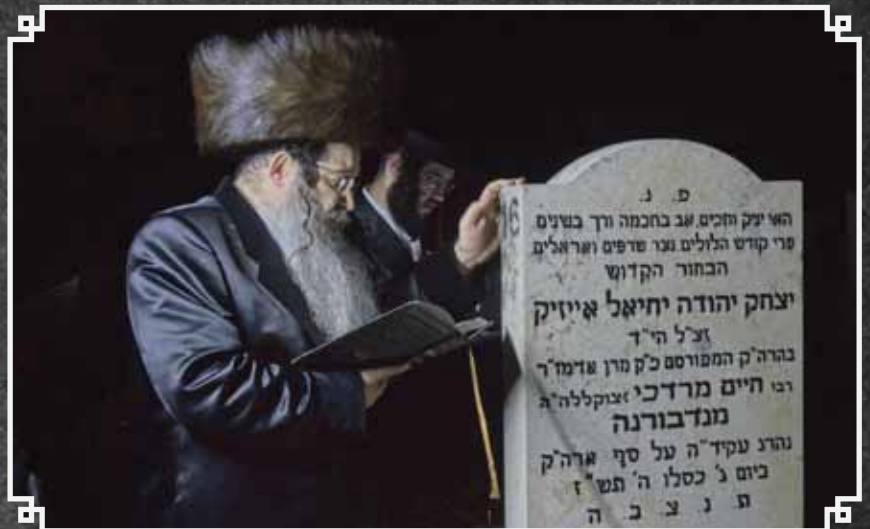 16
פ. נ.
האי יניק וחכים, אב בחכמה ורך בשנים
פרי קודש הלולים נצר שרפים ואראלים
הבחור הקדוש
יצחק יהודה יחיאל אייזיק
זצ"ל הי"ד
בהרה"ק המפורסם כ"ק מרן אדמו"ר
רבי חיים מרדכי זצוקללה"ה
מנדבורנה
נהרג עקיד"ה על סף ארה"ק
ביום ג' כסלו ה' תש"ז
ת נ צ ב ה